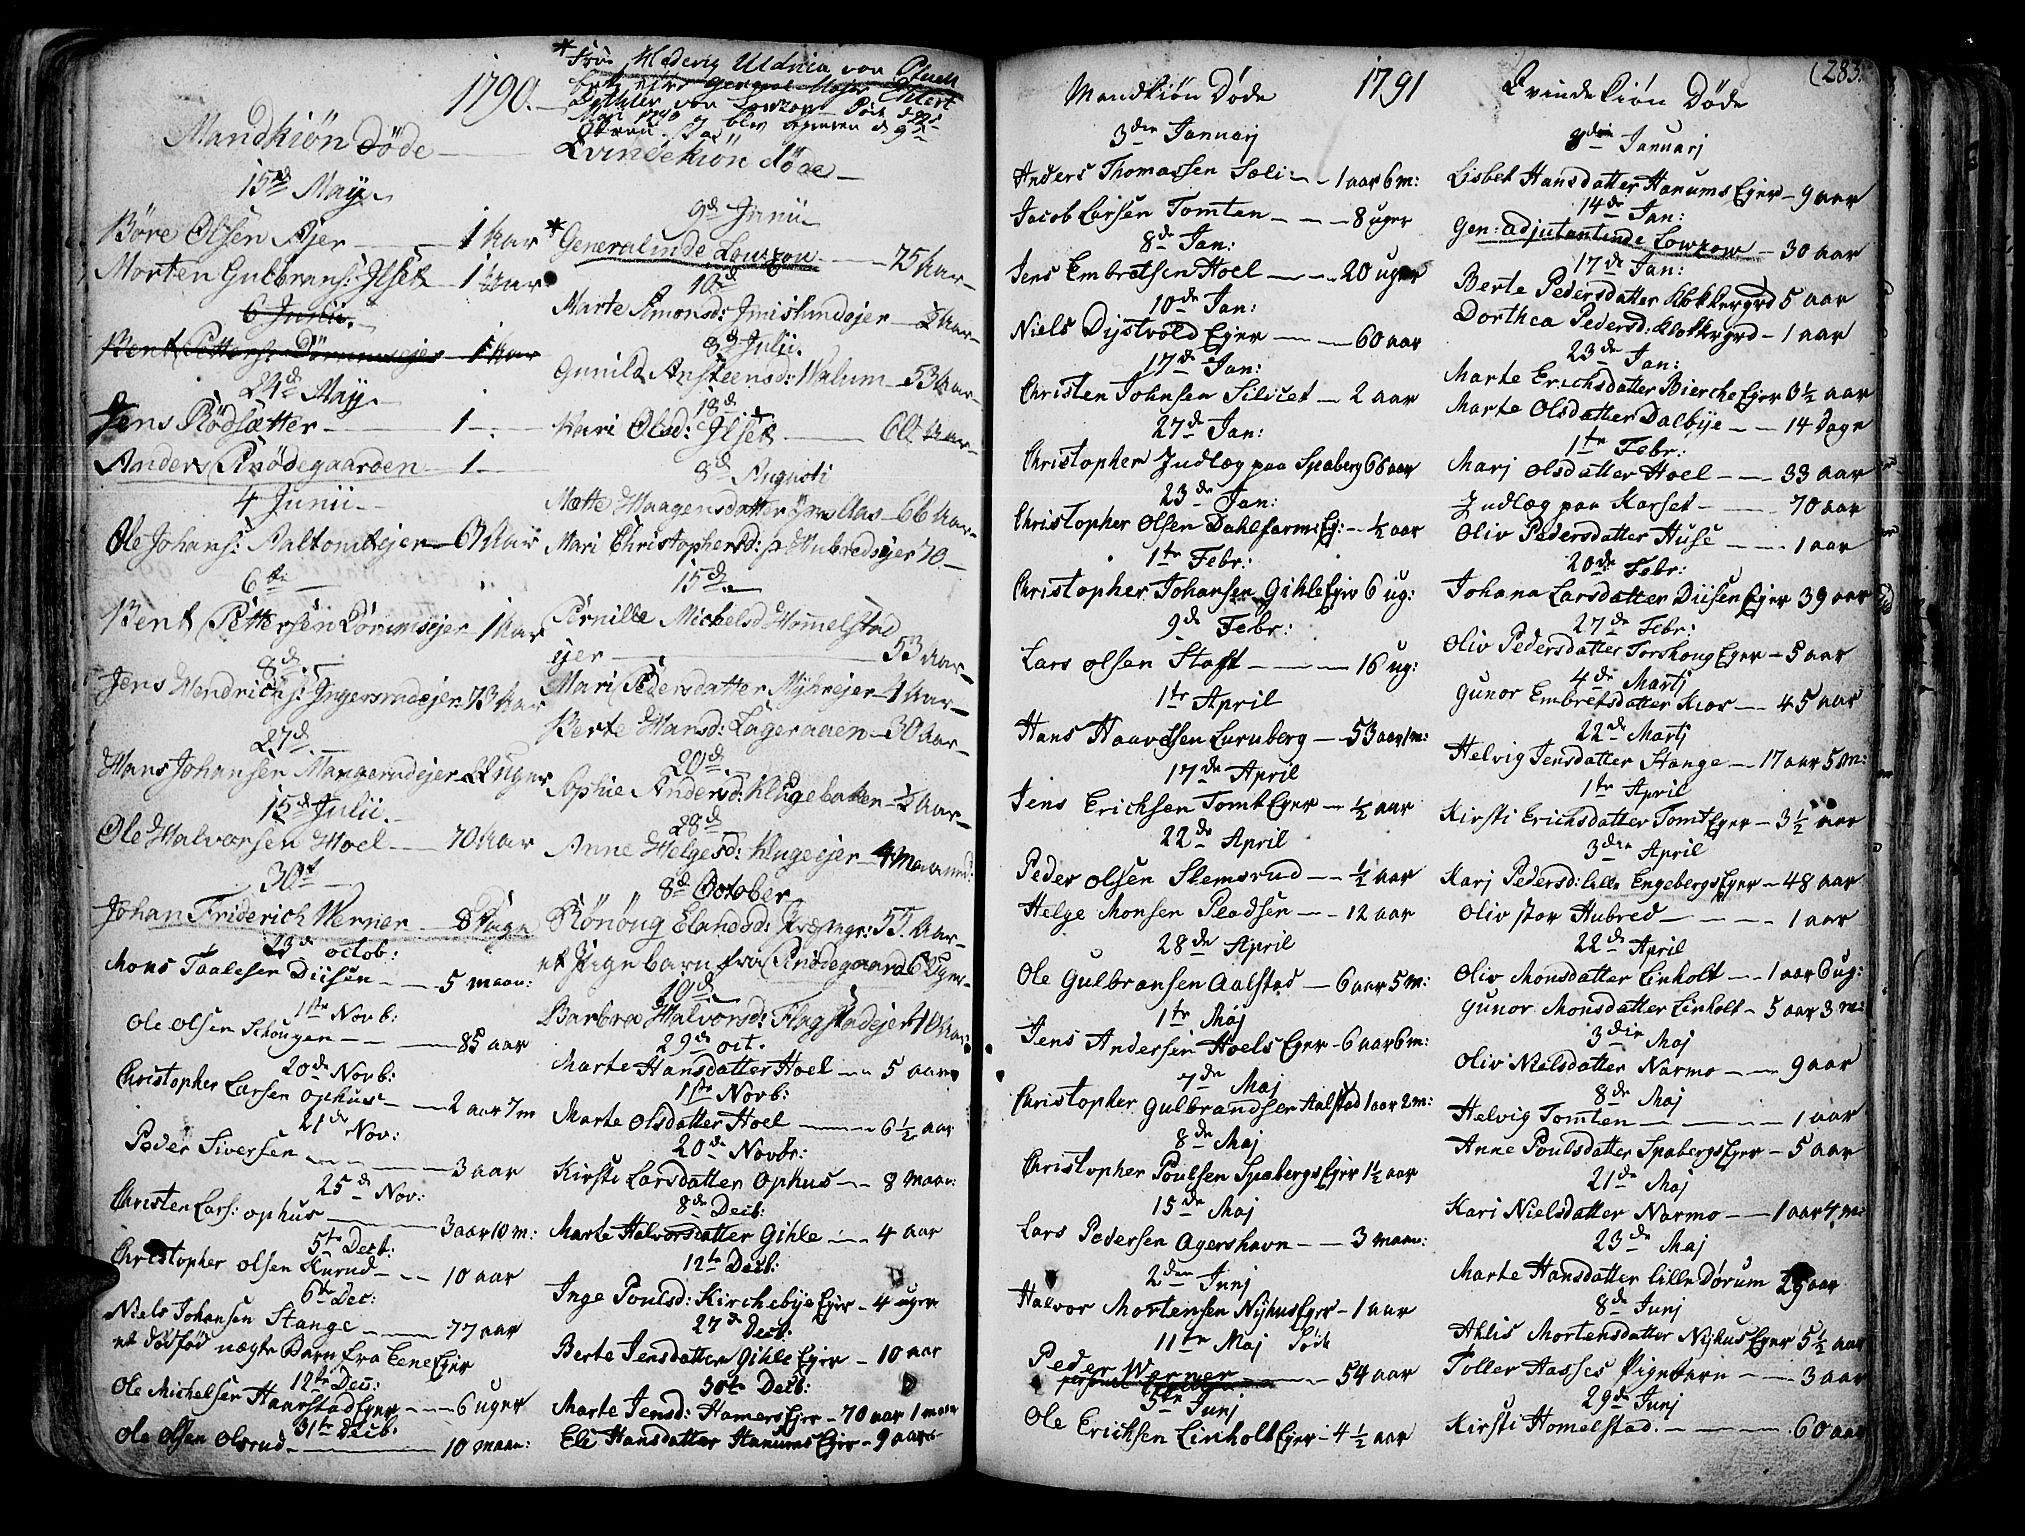 1790.
Mandkiön döde
15d May
Böre Olsen Ajer 1 Aar
Morten Gulbrans: Ilset 1 1/2 Aar
6 Junii.
Bent Petters: Dörumsejer 1 Aar
24d May
Jens Rödsætter 1
Anders Prödegaarden 1
4 Junii
Ole Johans:
6te
Bent Pettersen Dörumsejer 1 Aar
8d
Jens Hendrichs: 73 Aar
27d
Hans Johansen Mangerudejer uger
15d Julii.
Ole Halvorsen Hoel 70 Aar
30t
Johan Friderich Werner 8 Dage
23de octob:
Mons Taalesen Diisen 5 maan:
1ste Novb:
Ole Olsen Schougen 85 aar
20de Novb:
Christopher Larsen Ophus 2 aar 7 m
21de Nov:
Peder Siversen 3 aar
25d Nov:
Christen Lars: ophus 3 aar 10 m:
5te Decb:
Christopher Olsen Rurud 10 aar
6te Dec:
Niels Johansen Stange 77 aar
et dödföd uægte Barn fra Eene Ejer
12te Dec:
Ole Michelsen Haarstad Ejer 6 uger
31te Decb:
Ole Olsen Olsrud 10 maan:
* Frue Hedevig Uldrica von
General Major Ehlert
von Lowzow
blev begraven d 9de
Qvindekiön döde
9d Junii
* Generalinde Lowzow 75 Aar
10d
Marte Simonsd: 1/2 Aar
8d Julii.
Gunild Ansteensd: Walum 53 Aar
18d
Kari Olsd: Ilset 60 Aar
8d Augusti
Mætte Haagensdatter Aas 66 Aar
Mari Christophersd: Hubredsejer 70
15d
Pernille Michelsd Hommelstad
ejer 53 Aar
Mari Pedersdatter Myhrejer 1 Aar
Berte Hansd: Lageraaen 30 Aar
20d
Sophie Andersd: Klugebaken 1/2 Aar
28d
Anne Helgesd: Klugeejer 4 Maaned:
8d October
Rönöug Elandsd: Præstegr: 55 Aar
et Pigebarn fra Prödegaard 6 Uger
10d
Barbroe Halvorsd: Flagstadejer
29de oct.
Marte Hansdatter Hoel 5 aar
1ste Novb:
Marte Olsdatter Hoel 6 1/2 aar
20de Novbr:
Kirsti Larsdatter Ophus 8 maan:
8de Decb:
Marte Halvorsdatter Gihle 4 aar
12te Decb:
Inge Poulsd: Kirchebye Ejer 4 uger
27d Decb:
Berte Jensdatter Gihle Ejer 10 aar
30te Decb:
Marte Jensd: Hamers Ejer 70 aar 1 maan
Eli Hansdatter Hanums Ejer 9 aar
Mandkiön Døde 1791
3die Januarj
Anders Thomassen Sæli 1 aar 6 m:
Jacob Larsen Tomten 8 uger
8de Jan:
Jens Embretsen Hoel 20 uger
10de Jan:
Niels Dystvold Ejer 60 aar
17de Jan:
Christen Johnsen Silviet 2 aar
27de Jan:
Christopher Indlæg paa Spaberg 66 aar
23de Jan:
Christopher Olsen Dahlfarms Ej: 1/2 aar
1te Febr:
Christopher Johansen Gihle Ejer 6 ug:
9de Febr:
Lars Olsen Staft 16 ug:
1te April
Hans Haavelsen Luruberg 53 aar 1 m:
17de April
Jens Erichsen Tomt Ejer 1/2 aar
22de April
Peder Olsen Skemsrud 1/2 aar
Helge Monsen Pladsen 12 aar
28de April
Ole Gulbransen Aalstad 6 aar 5 m:
1te Maj
Jens Andersen Hoels Ejer 6 aar 6 m:
7de Maj
Christopher Gulbrandsen Aalstad 1 aar 2 m:
8de Maj
Christopher Poulsen Spabergs Ejer 1 1/2 aar
15de Maj
Lars Pedersen Agershavn 3 maan:
2den Junj
Halvor Mortensen Nyhus Ejer 1 aar
11te Maj Døde
Peder Werner 54 aar
5te Junj
Ole Erichsen Linholt Ejer 4 1/2 aar
(283.
Qvindekiön Døde
8de Januarj
Lisbet Hansdatter Hanums Ejer 9 aar
14de Jan:
Gen: adjutantinde Lowzow 30 aar
17de Jan:
Berte Pedersdatter Klokkergrd 5 aar
Dorthea Pedersd: Klokkergrd 1 aar
23de Jan:
Marte Erichsdatter Bierche Ejer 3 1/2 aar
Marte Olsdatter Dalbye 14 Dage
1te Febr:
Marj Olsdatter Hoel 33 aar
Indlæg paa Karset 70 aar
Oliv Pedersdatter Huse 1 aar
20de Febr:
Johana Larsdatter Diisen Ejer 39 aar
27de Febr:
Oliv Pedersdatter Torshoug Ejer 5 aar
4de Martj
Gunor Embretsdatter Kios 45 aar
22de Martj
Helvig Jensdatter Stange 17 aar 5 m:
1te April
Kirsti Erichsdatter Tomt Ejer 3 1/2 aar
3die April
Karj Pedersd: lille Engebergs Ejer 48 aar
Oliv stor Hubred 1 aar
22de April
Oliv Monsdatter Linholt 1 aar 6 ug:
Gunor Monsdatter Linholt 5 aar 3 m:
3die Maj
Oliv Nielsdatter Narmo 9 aar
8de Maj
Helvig Tomten 1 aar
Anne Poulsdatter Spabergs Ejer 5 aar
21de Maj
Kari Nielsdatter Narmo 1 aar 7 m:
23de Maj
Marte Hansdatter lille Dørum 29 aar
8de Junj
Ahlis Mortensdatter Nyhus Ejer 5 1/2 aar
Toller Hasses Pigebarn 3 aar
29de Junj
Kirsti Homelstad. 60 aar